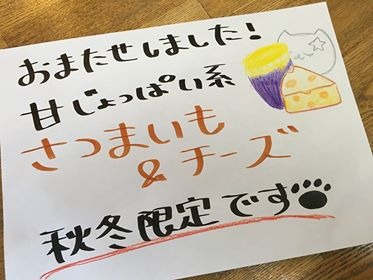 おまたせしました!
甘じょっぱい系
さつまいも
&チーズ
秋冬限定です